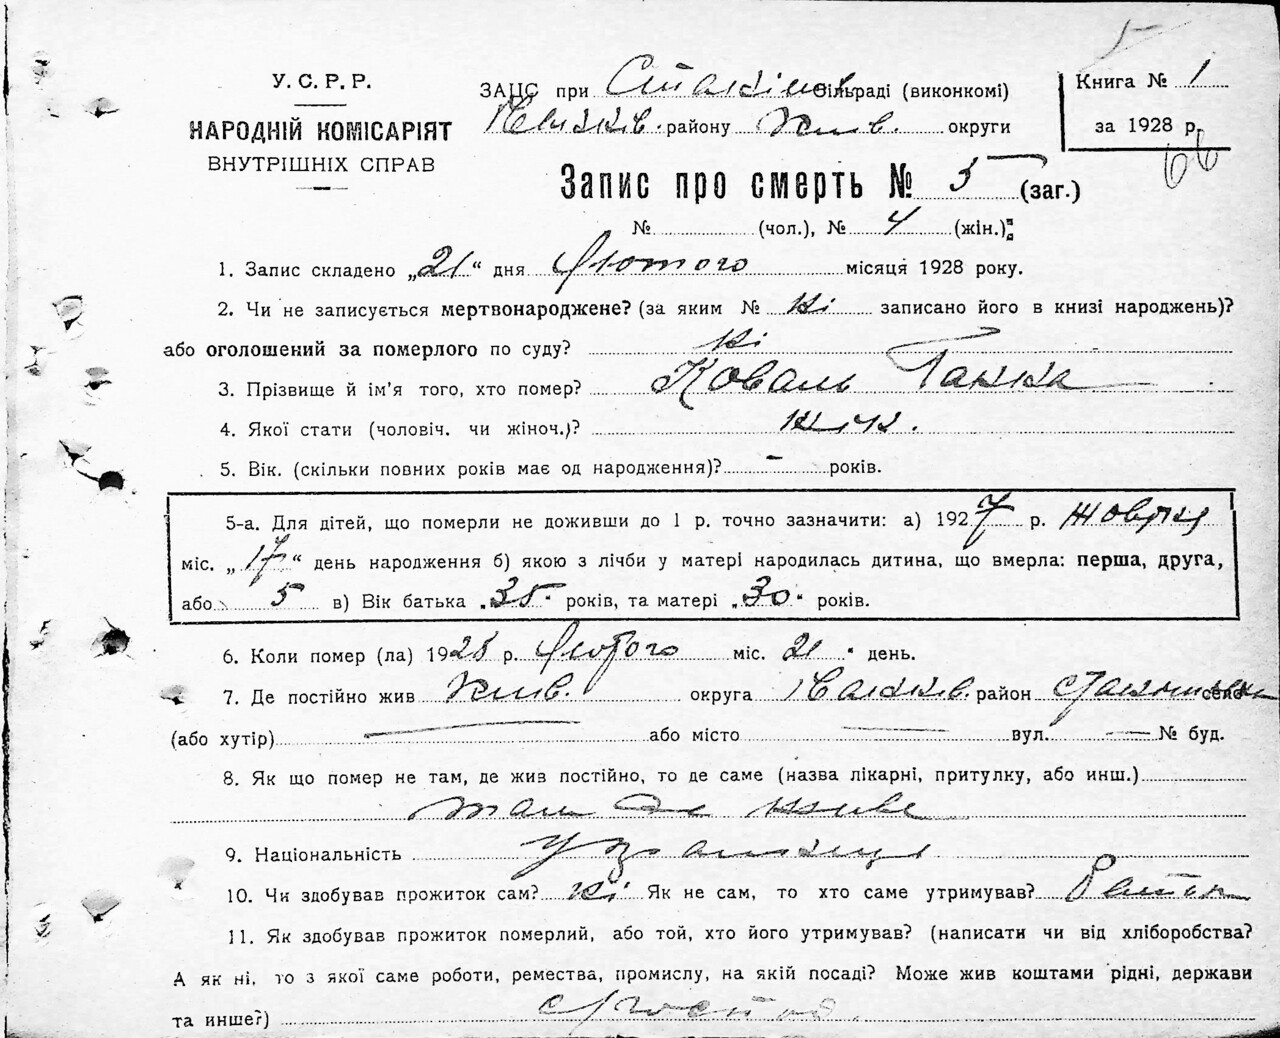 У.С.Р.Р.
НАРОДНІЙ КОМІСАРІЯТ
ВНУТРІШНІХ СПРАВ
ЗАЦС при сільраді (виконкомі)
району Київ. округи
Книга № 1
за 1928 р.
66
Запис про смерть № 5 (заг.)
№ (чол.), № 4 (жін.);
1. Запис складено „21“ дня Лютого місяця 1928 року.
2. Чи не записується мертвонароджене? (за яким № ні записано його в книзі народжень)?
або оголошений за померлого по суду? ні
3. Прізвище й ім'я того, хто помер? Коваль Ганна
4. Якої стати (чоловіч. чи жіноч.)? жін.
5. Вік. (скільки повних років має од народження)? – років.
5-а. Для дітей, що померли не доживши до 1 р. точно зазначити: а) 1927 р. жовтня
міс. „17“ день народження б) якою з лічби у матері народилась дитина, що вмерла: перша, друга,
або 5 в) Вік батька „35“ років, та матері „30“ років.
6. Коли помер (ла) 1928 р. Лютого міс. 21 “ день.
7. Де постійно жив Київ. округа район село
(або хутір) — або місто — вул. — № буд.
8. Як що помер не там, де жив постійно, то де саме (назва лікарні, притулку, або инш.)
там де живе
9. Національність українця
10. Чи здобував прожиток сам? ні Як не сам, то хто саме утримував? Батьки
11. Як здобував прожиток померлий, або той, хто його утримував? (написати чи від хліборобства?
А як ні, то з якої саме роботи, ремества, промислу, на якій посаді? Може жив коштами рідні, держави
та инше?)